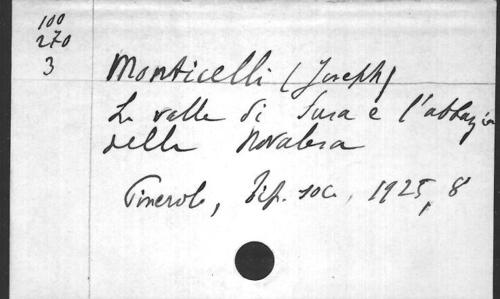 100
270
3
Monticelli (Joseph)
La valle di Susa e l'abbazia
della Novalesa
Pinerolo, Tip. soc., 1925, 8